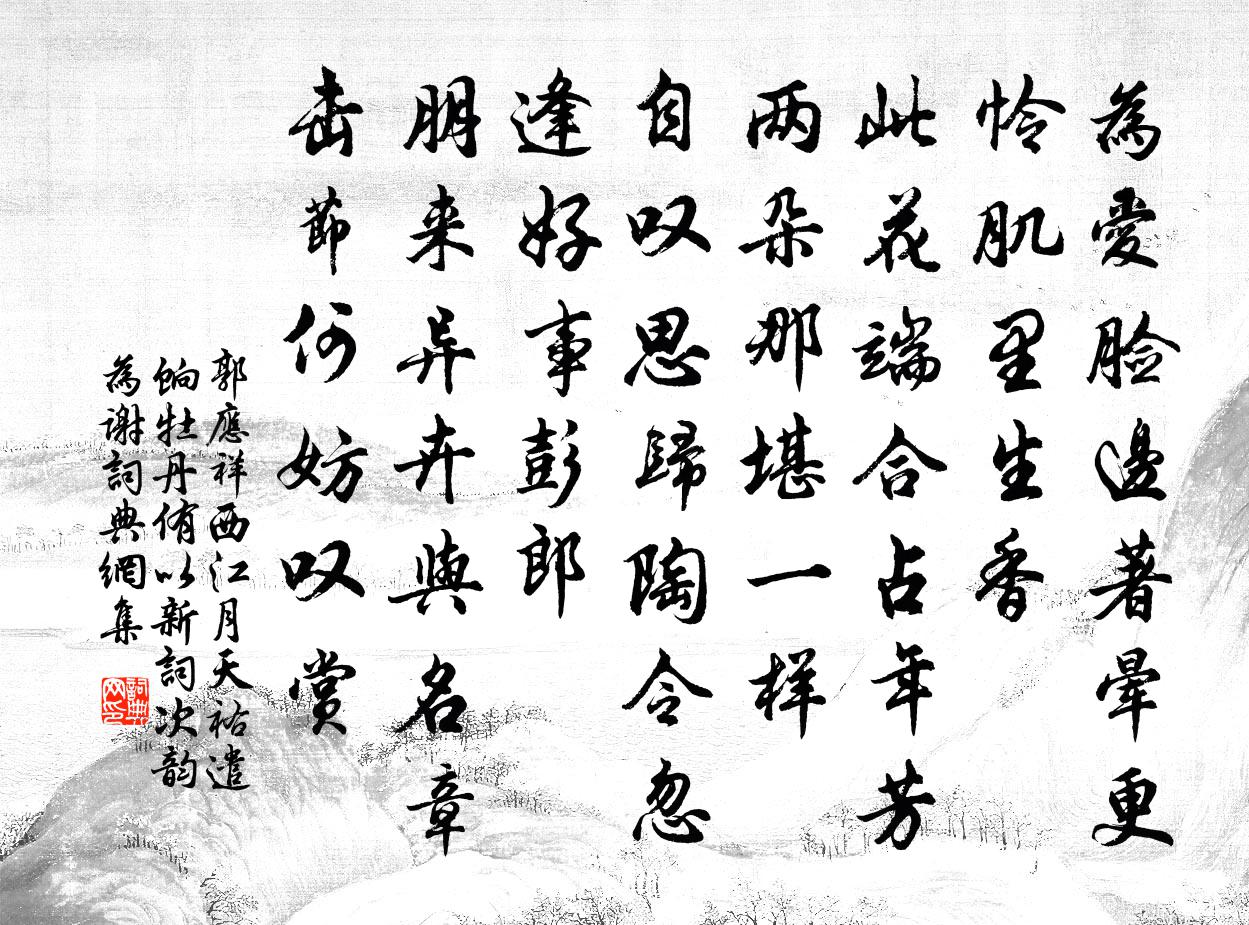 為愛臉邊著暈更
怜肌里生香
此花端合占年芳
两朵那堪一样
自叹思歸陶令忽
逢好事彭郎
朋来异卉與名章
击節何妨叹賞
郭應祥西江月天祐遣
餉牡丹侑以新詞次韵
為謝詞典網集
詞典网印